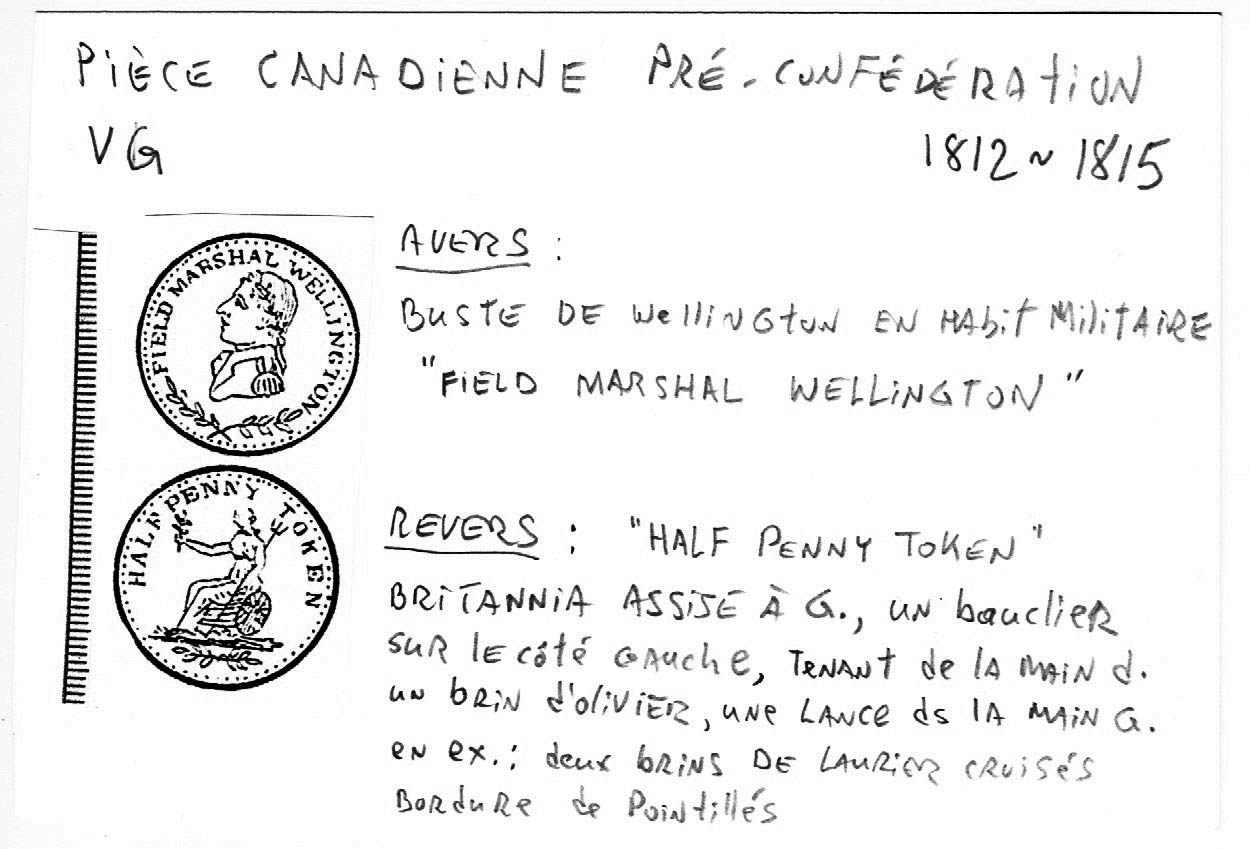 PIÈCE CANADIENNE PRÉ-CONFÉDÉRATION
VG 1812 ~ 1815
FIELD MARSHAL WELLINGTON
HALF PENNY TOKEN
AVERS :
BUSTE DE WELLINGTON EN HABIT MILITAIRE
"FIELD MARSHAL WELLINGTON"
REVERS : "HALF PENNY TOKEN"
BRITANNIA ASSISE À G., UN bouclier
SUR LE côté GAUCHE, TENANT de LA MAIN d.
UN BRIN d'OLIVIER, UNE LANCE ds LA MAIN G.
EN EX. : deux BRINS DE LAURIER CROISÉS
BORDURE de POINTILLÉS